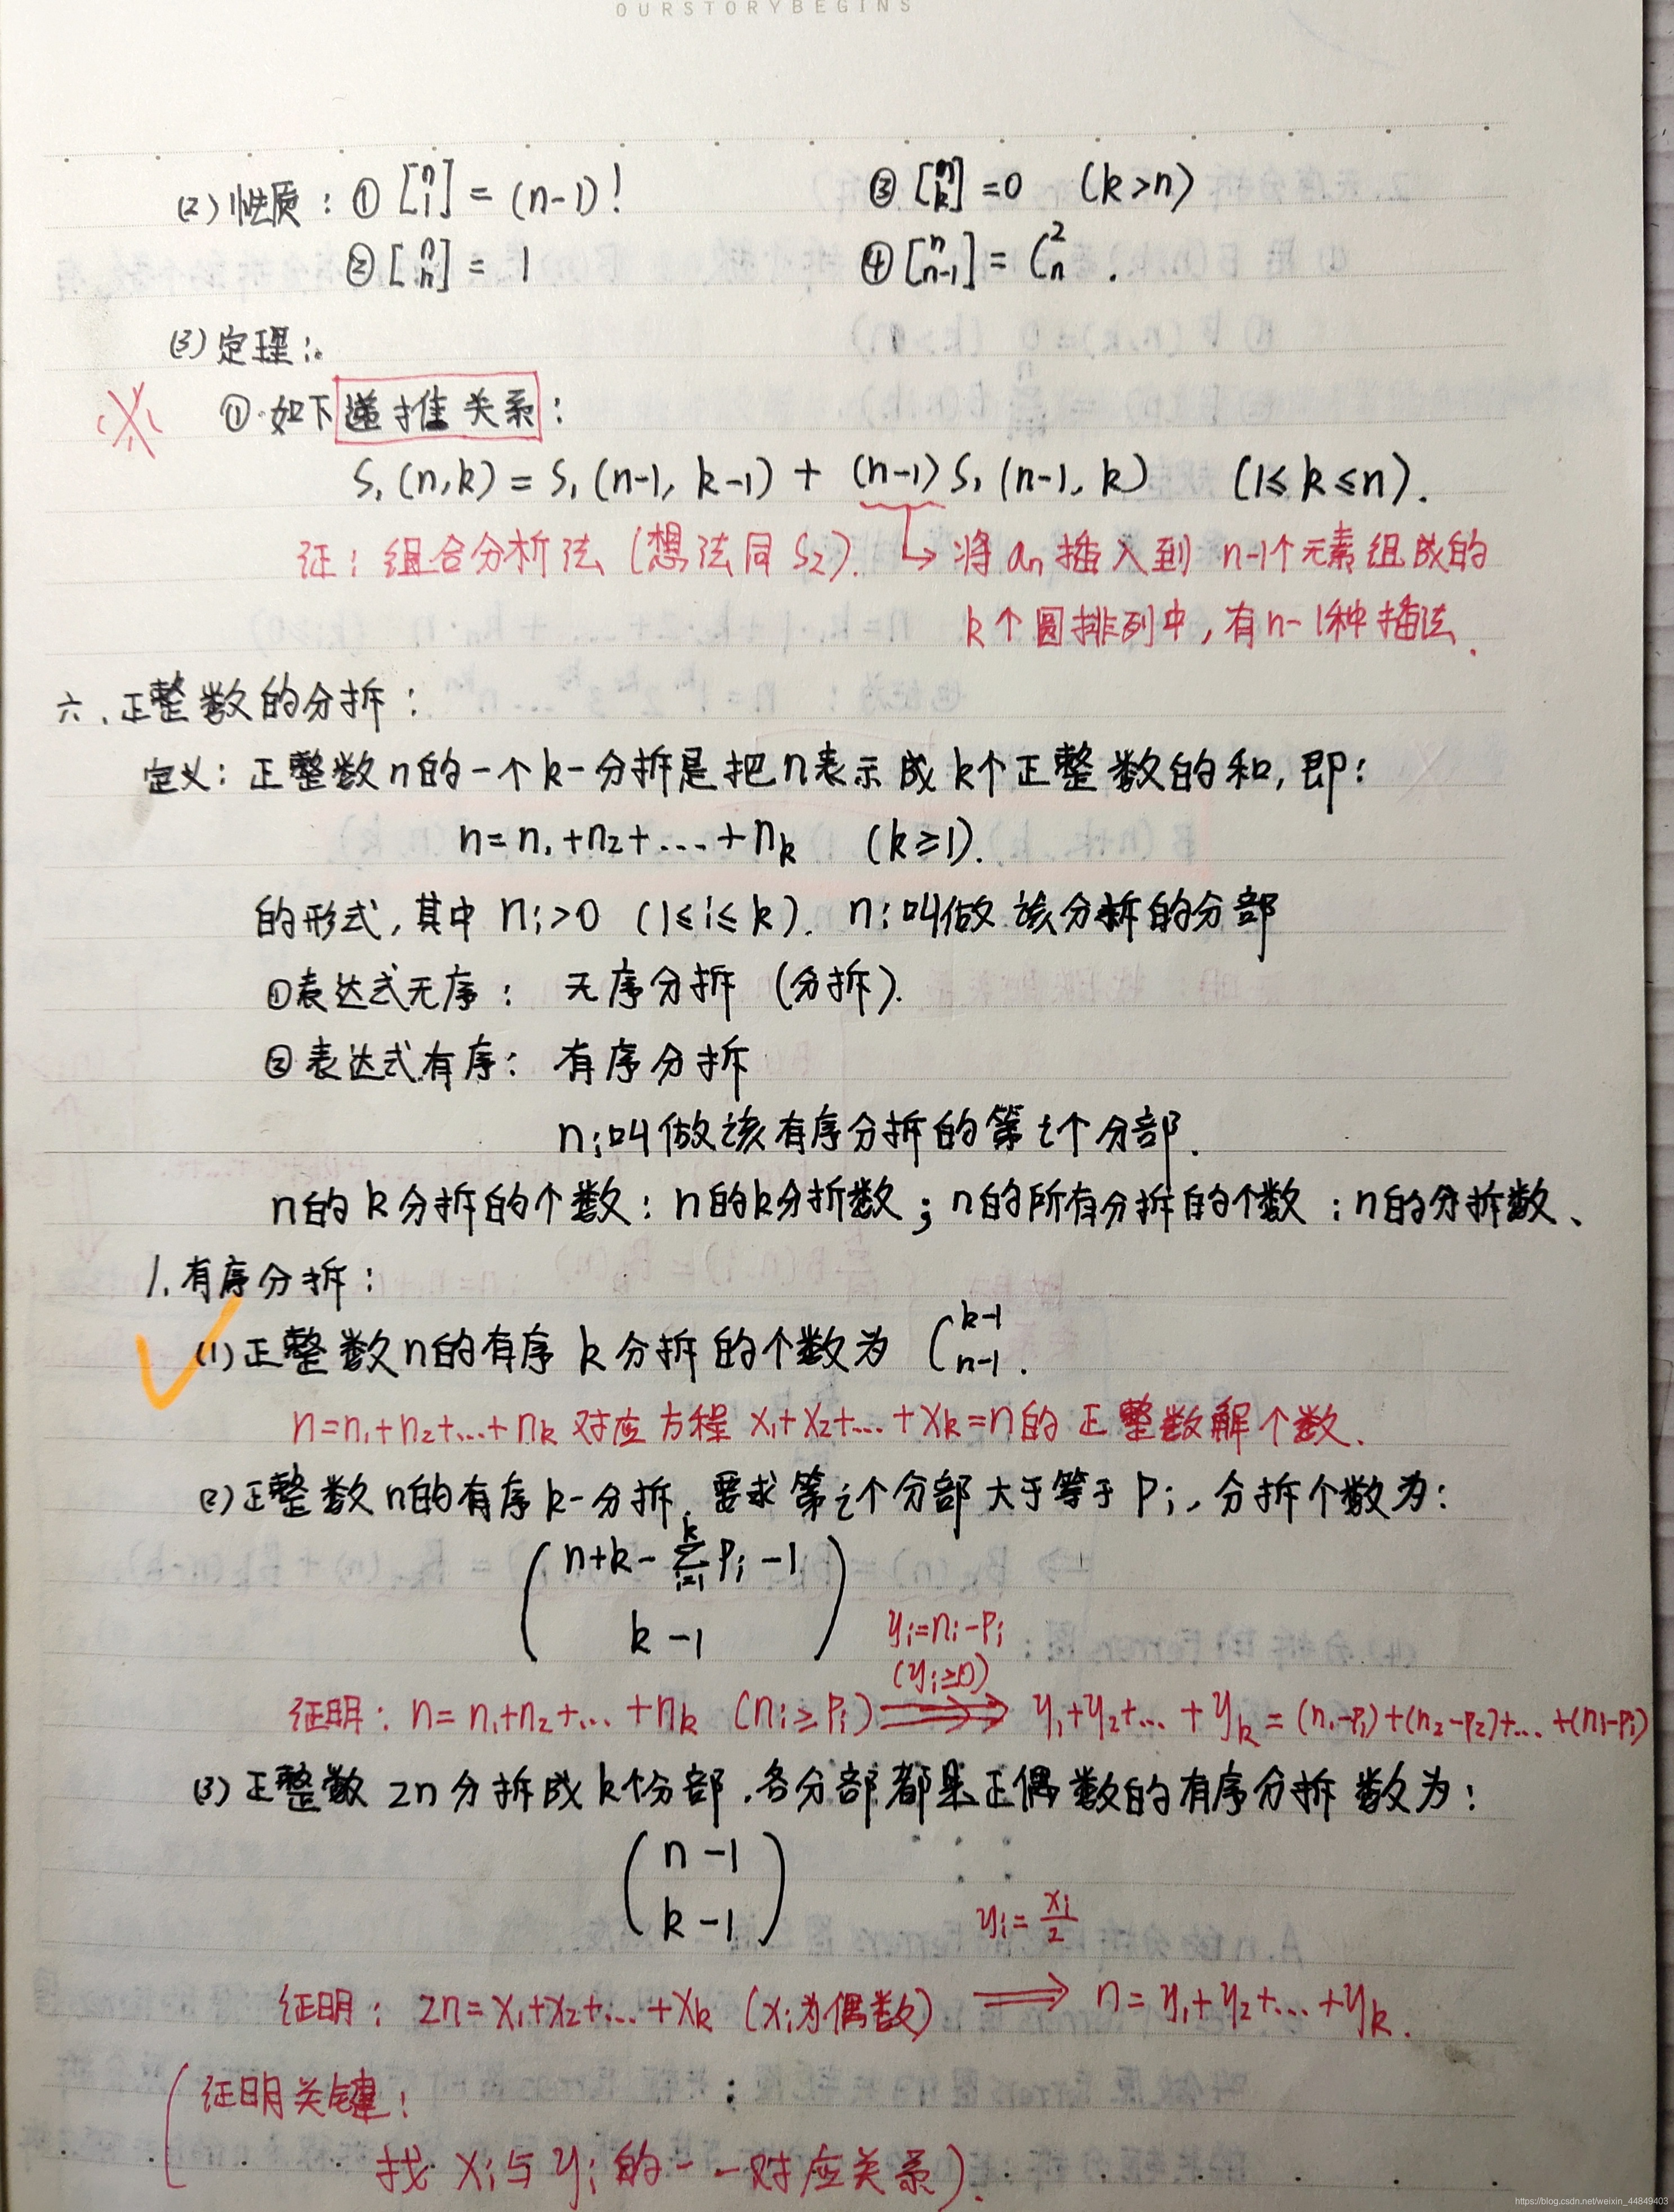 OURSTORYBEGINS
(2) 性质：① [n 1] = (n-1)! ③ [n k] = 0 (k>n)
② [n n] = 1 ④ [n n-1] = C_n^2 .
(3) 定理：
① 如下递推关系：
S₁(n,k) = S₁(n-1, k-1) + (n-1) S₁(n-1, k) (1≤k≤n).
证：组合分析法（想法同S₂). → 将 aₙ 插入到 n-1个元素组成的
k个圆排列中，有n-1种插法.
六、正整数的分拆：
定义：正整数n的一个k-分拆是把n表示成k个正整数的和，即：
n=n₁+n₂+…+n_k (k≥1).
的形式，其中 n_i>0 (1≤i≤k). n_i叫做该分拆的分部
①表达式无序：无序分拆（分拆).
②表达式有序：有序分拆
n_i叫做该有序分拆的第i个分部.
n的k分拆的个数：n的k分拆数；n的所有分拆的个数：n的分拆数、
1. 有序分拆：
(1) 正整数n的有序k分拆的个数为 C_{n-1}^{k-1}.
n=n₁+n₂+…+n_k 对应方程 x₁+x₂+…+x_k=n的正整数解个数.
(2) 正整数n的有序k-分拆，要求第i个分部大于等于p_i，分拆个数为：
k
( n+k-∑p_i-1 )
i=1
k-1
y_i=n_i-p_i
(y_i≥0)
证明：n=n₁+n₂+…+n_k (n_i≥p_i) ⇒ y₁+y₂+…+y_k=(n₁-p₁)+(n₂-p₂)+…+(n_i-p_i)
(3) 正整数2n分拆成k个分部，各分部都是正偶数的有序分拆数为：
( n-1
k-1 )
y_i= x_i/2
证明：2n=x₁+x₂+…+x_k (x_i为偶数) ⇒ n=y₁+y₂+…+y_k.
(证明关键：
找 x_i与y_i的一一对应关系).
https://blog.csdn.net/weixin_44849403